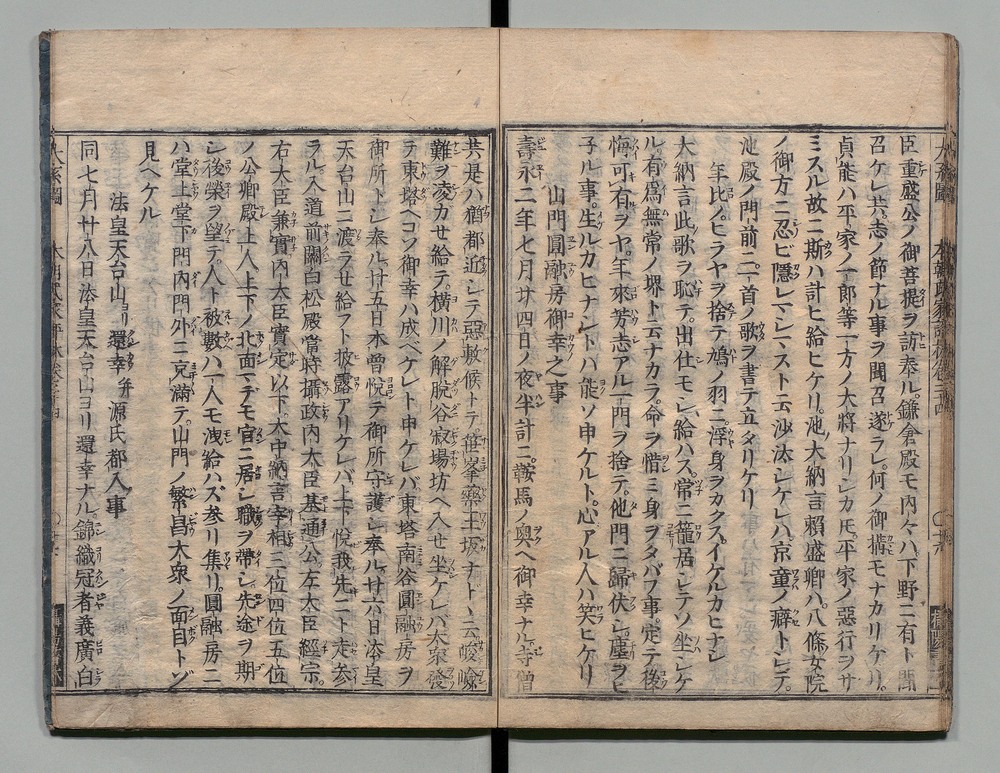 臣重盛公ノ御菩提ヲ訪奉ル。鎌倉殿モ内々ハ下野ニ有ト聞
召ケレ共、志ノ節ナル事ヲ聞召遂ラレ。何ノ御搆モナカリケリ。
貞能ハ平家ノ一郎等一方ノ大將ナリシカ𪜈。平家ノ惡行ヲサ
ミスル故ニ斯ハ計ヒ給ヒケリ。池ノ大納言賴盛卿ハ。八條女院
ノ御方ニ忍ビ隱レマシマスト云沙汰シケレハ。京童ノ癖トシテ。
池殿ノ門前ニ。一首ノ歌ヲ書テ立タリケリ
年比ノ。ヒラヤヲ捨テ鳩ノ羽ニ。浮身ヲカクス。イケルカヒナシ
大納言此歌ヲ恥テ。出仕モシ給ハス。常ニ籠居シテソ坐シケ
ル有爲無常ノ堺ト云ナカラ。命ヲ惜ミ身ヲタバフ事。定テ後
悔可有ヲヤ。年來芳志アル一門ヲ捨テ。他門ニ歸伏シ。塵ヲヒ
子ル事。生ルカヒナシトハ能ソ申ケルト。心アル人ハ笑ヒケリ
山門圓融房御幸之事
壽永二年七月廿四日ノ夜半計ニ。鞍馬ノ奥ヘ御幸ナル。寺僧
共是ハ猶都近シテ惡敷候トテ。篠峯藥王坂ナト云峻嶮
難ヲ凌カセ給テ。横川ノ解脱谷寂場坊ヘ入セ坐ケレバ大衆發
テ東塔ヘコソ御幸ハ成ヘケレト申ケレバ東塔南谷圓融房ヲ
御所トシ奉ル廿五日木曾悅テ御所守護シ奉ル廿六日法皇
天台山ニ渡ラせ給フト披露アリケレバ上下悅我先ニト走参
ラル入道前關白松殿當時攝政内大臣基通公。左大臣經宗。
右大臣兼實内大臣實定以下。大中納言宰相三位四位五位
ノ公卿殿上人上下ノ北面マデモ官ニ居シ職ヲ帶シ先途ヲ期
シ後榮ヲ望テ。人ト被數ハ一人モ洩給ハズ参リ集リ。圓融房ニ
ハ堂上堂下門内門外ニ充滿テ。山門ノ繁昌大衆ノ面目トゾ
見ヘケル
法皇天台山ヨリ還幸 并 源氏都入事
同七月廿八日法皇天台山ヨリ還幸ナル。錦織冠者義廣白